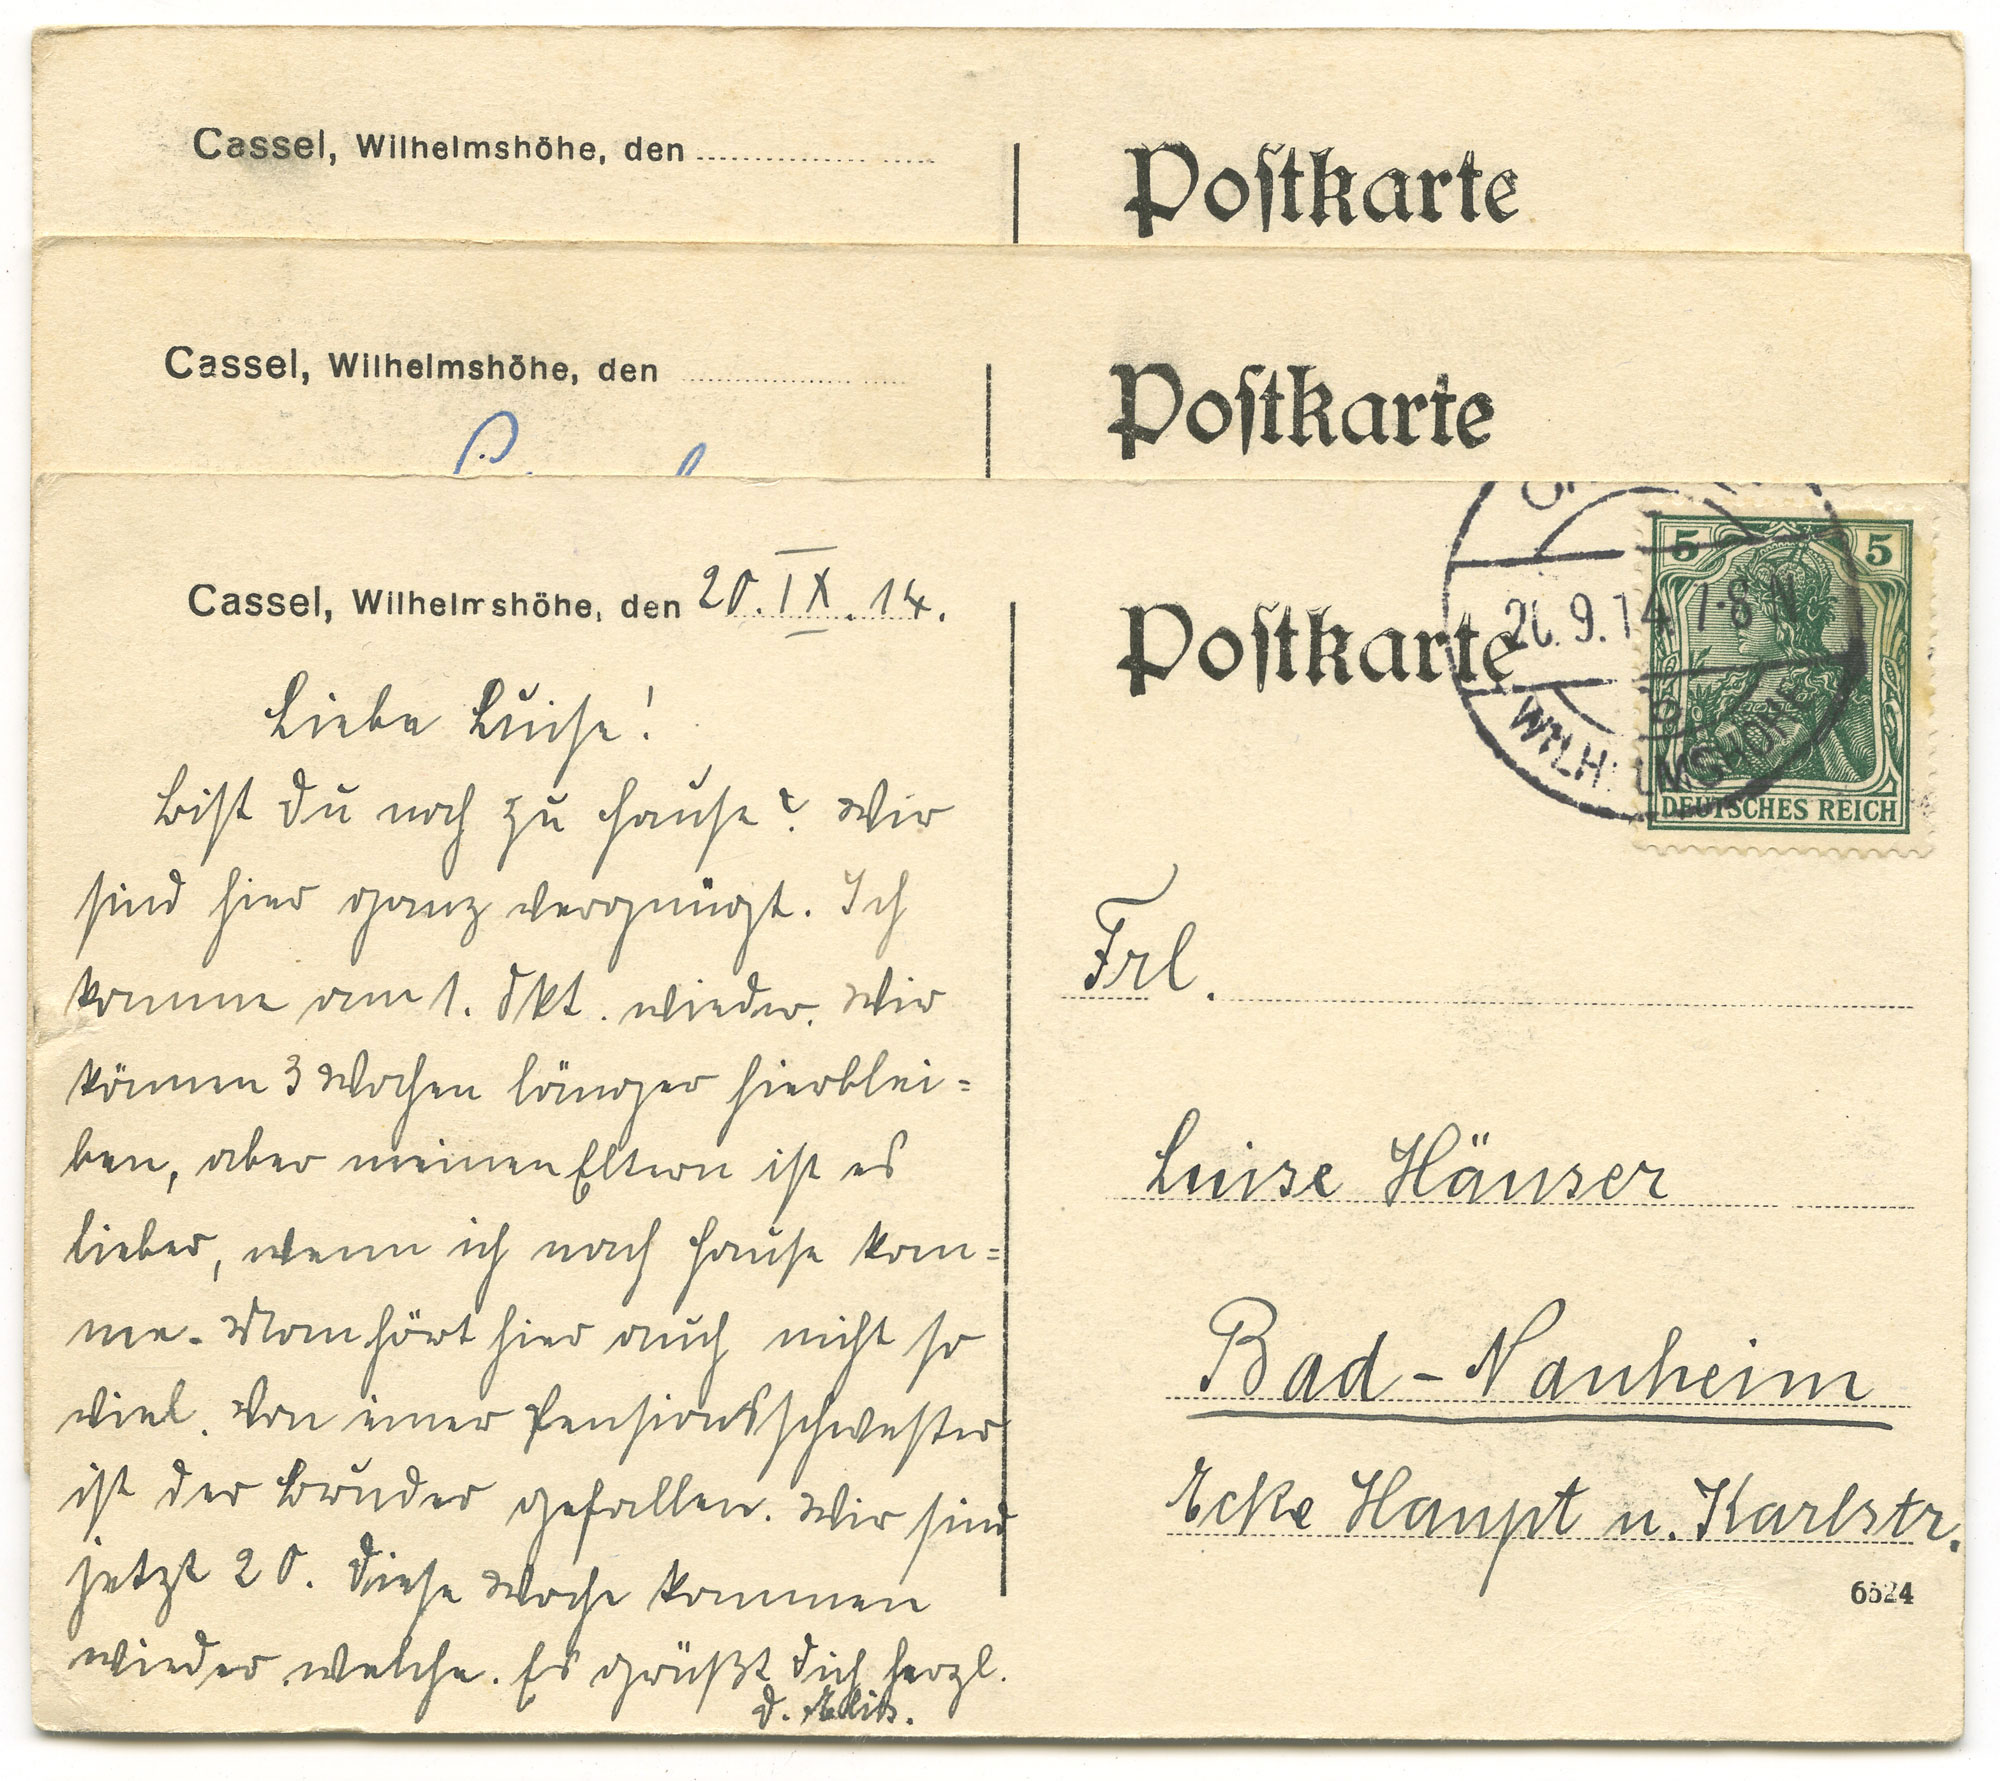 Cassel, Wilhelmshöhe, den
Postkarte
Cassel, Wilhelmshöhe, den
Postkarte
Cassel, Wilhelmshöhe, den 20. IX. 14.
Liebe Luise!
Bist Du noch zu Hause? Wir
sind hier ganz vergnügt. Ich
komme am 1. Okt. wieder. Wir
können 3 Wochen länger hierblei=
ben, aber meinen Eltern ist es
lieber, wenn ich nach Hause kom=
me. Man hört hier auch nicht so
viel. Von einer Pensionsschwester
ist der Bruder gefallen. Wir sind
jetzt 20. Diese Woche kommen
wieder welche. Es grüßt Dich herzl.
d.
Postkarte
9.14 7-8 N
WILHELMSHÖHE
5 5
DEUTSCHES REICH
Frl.
Luise Häuser
Bad-Nauheim
Ecke Haupt u. Karlstr.
6524